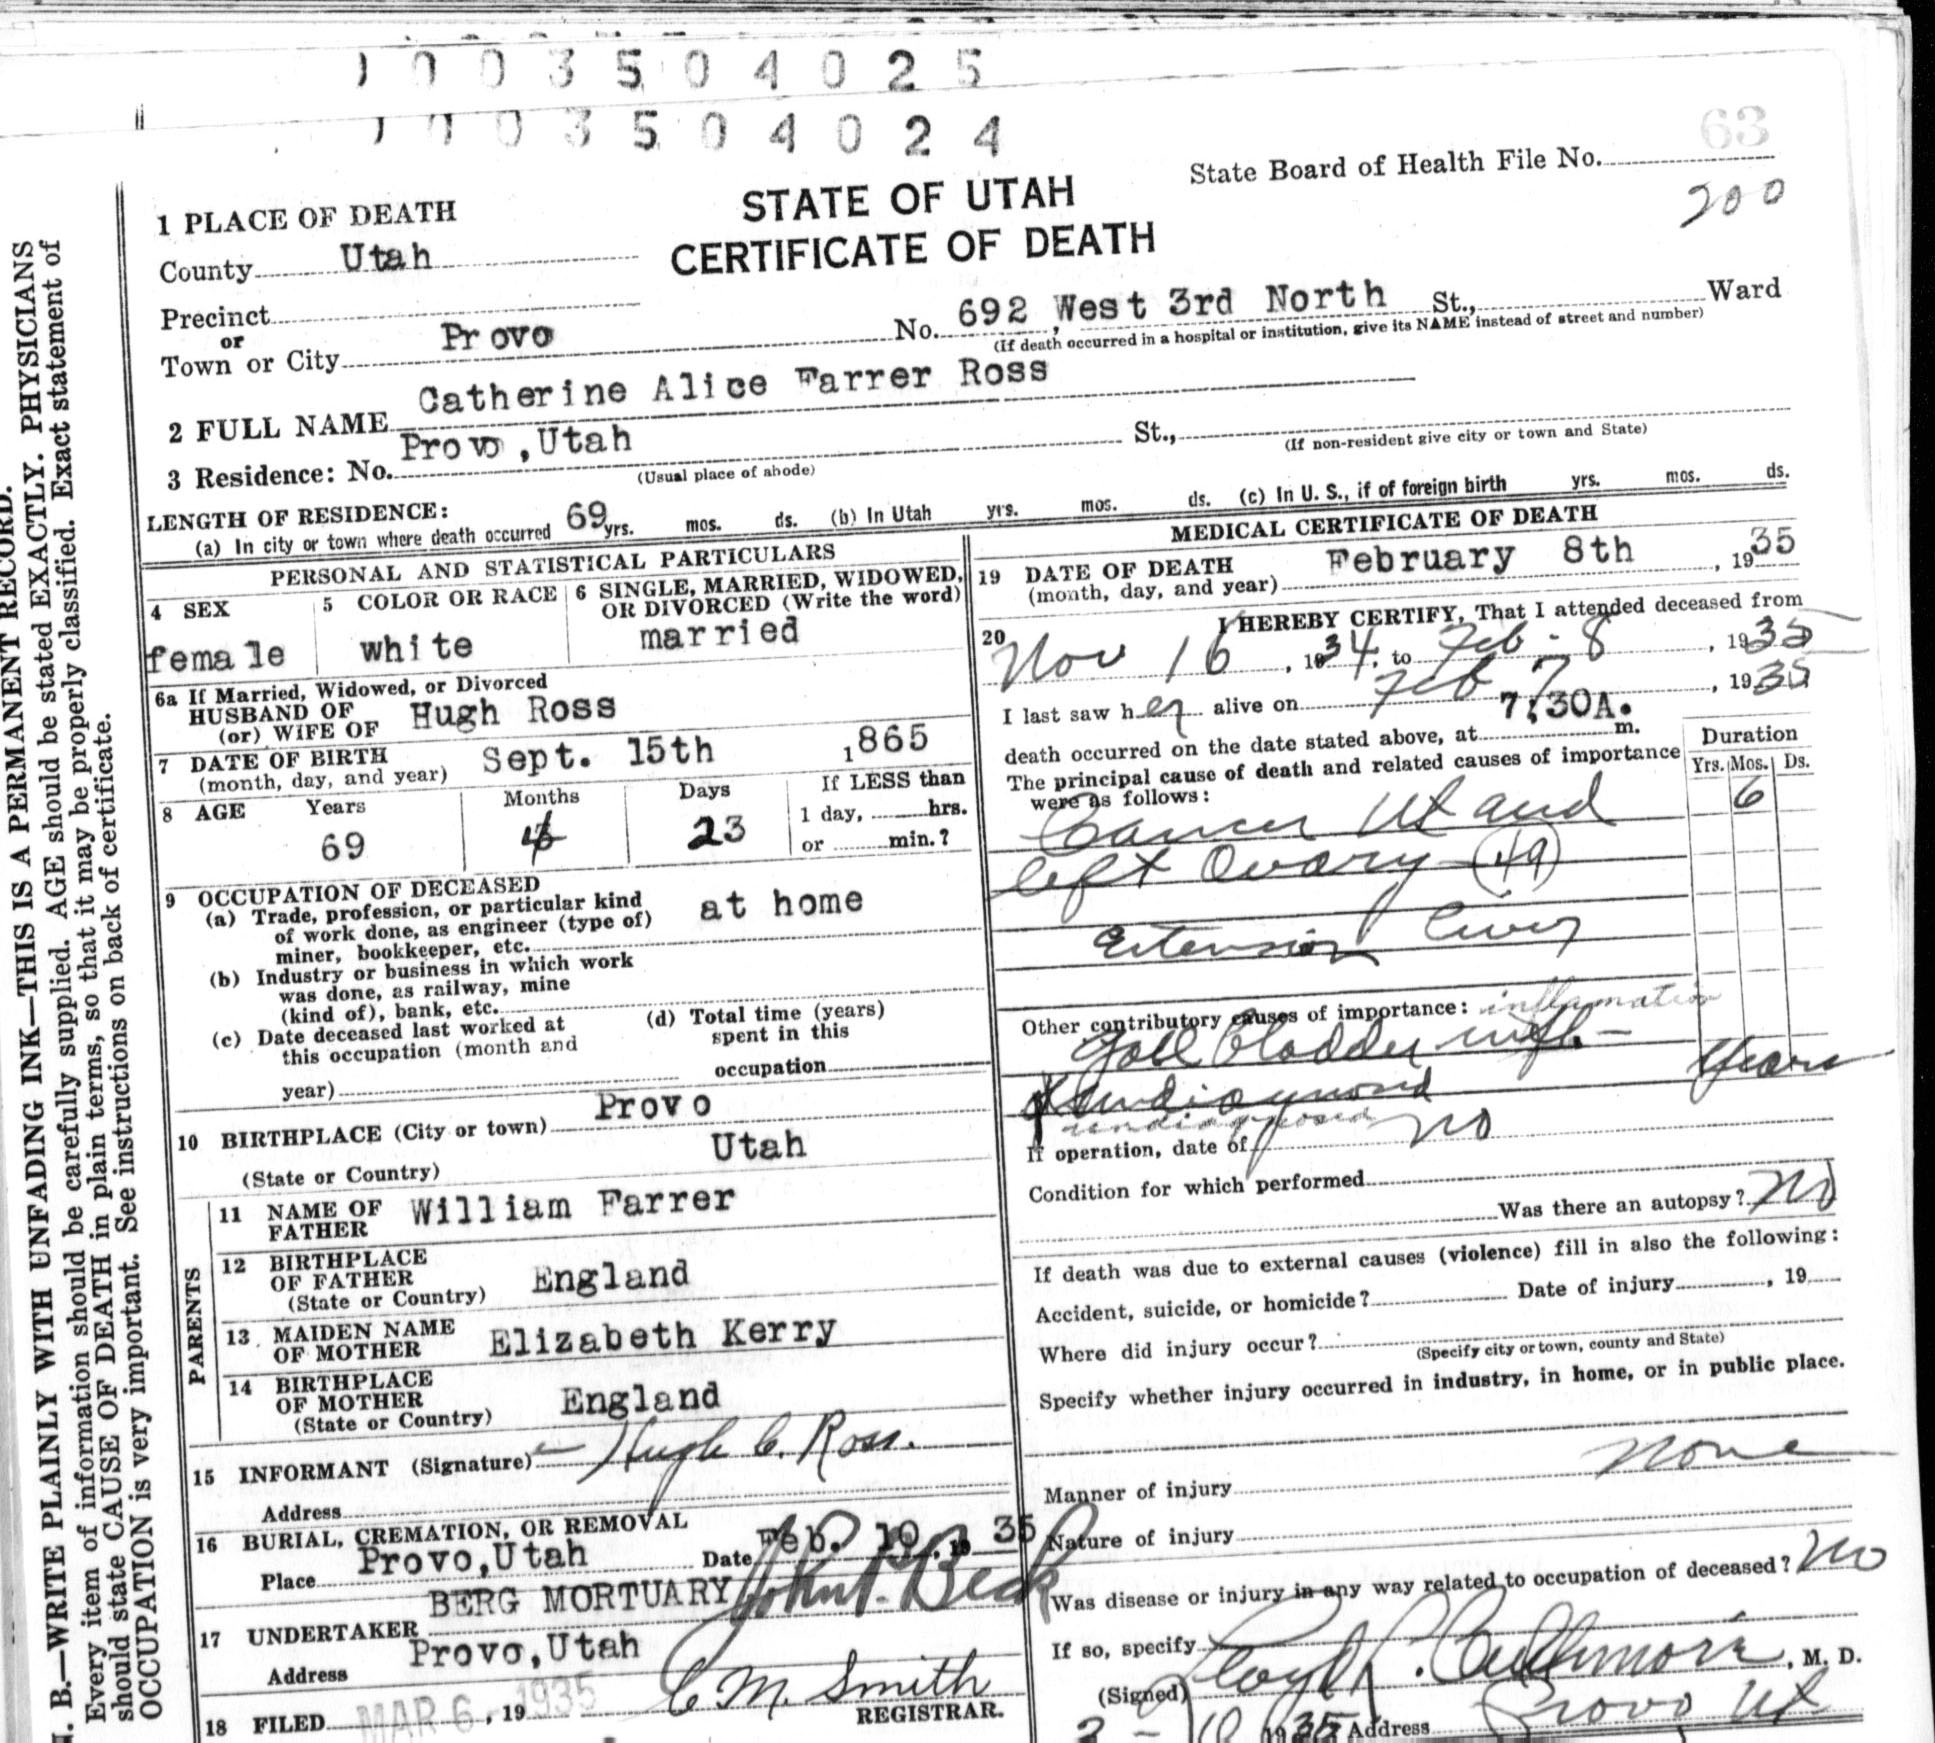 0 0 3 5 0 4 0 2 5
0 0 3 5 0 4 0 2 4
63
State Board of Health File No.
200
STATE OF UTAH
CERTIFICATE OF DEATH
1 PLACE OF DEATH
County Utah
Precinct
or
Town or City Provo No. 692 West 3rd North St., Ward
(If death occurred in a hospital or institution, give its NAME instead of street and number)
2 FULL NAME Catherine Alice Farrer Ross
3 Residence: No. Provo, Utah St.,
(Usual place of abode) (If non-resident give city or town and State)
LENGTH OF RESIDENCE:
(a) In city or town where death occurred 69 yrs. mos. ds. (b) In Utah yrs. mos. ds. (c) In U. S., if of foreign birth yrs. mos. ds.
PERSONAL AND STATISTICAL PARTICULARS
4 SEX
female
5 COLOR OR RACE
white
6 SINGLE, MARRIED, WIDOWED,
OR DIVORCED (Write the word)
married
6a If Married, Widowed, or Divorced
HUSBAND OF
(or) WIFE OF Hugh Ross
7 DATE OF BIRTH
(month, day, and year) Sept. 15th 1865
8 AGE Years Months Days If LESS than
69 23 1 day, hrs.
or min.?
9 OCCUPATION OF DECEASED
(a) Trade, profession, or particular kind
of work done, as engineer (type of)
miner, bookkeeper, etc. at home
(b) Industry or business in which work
was done, as railway, mine
(kind of), bank, etc.
(c) Date deceased last worked at
this occupation (month and
year)
(d) Total time (years)
spent in this
occupation
10 BIRTHPLACE (City or town) Provo
(State or Country) Utah
PARENTS
11 NAME OF
FATHER William Farrer
12 BIRTHPLACE
OF FATHER
(State or Country) England
13 MAIDEN NAME
OF MOTHER Elizabeth Kerry
14 BIRTHPLACE
OF MOTHER
(State or Country) England
15 INFORMANT (Signature) Hugh C. Ross.
Address
16 BURIAL, CREMATION, OR REMOVAL
Place Provo, Utah Date Feb. 10, 19 35
BERG MORTUARY John P. Beck
17 UNDERTAKER
Address Provo, Utah
18 FILED MAR 6 - 1935, 19 C M. Smith
REGISTRAR.
MEDICAL CERTIFICATE OF DEATH
19 DATE OF DEATH
(month, day, and year) February 8th, 1935
20 I HEREBY CERTIFY, That I attended deceased from
Nov 16, 1934, to Feb - 8, 1935
I last saw her alive on Feb 7, 1935
death occurred on the date stated above, at 7:30A. m.
The principal cause of death and related causes of importance
were as follows:
Duration
Yrs. Mos. Ds.
6
Cancer Ut and
left Ovary (49)
Extension Liver
Other contributory causes of importance: inflamation
Gall Bladder infl. - Years
undiagnosed
undiagnosed
If operation, date of no
Condition for which performed
Was there an autopsy? No
If death was due to external causes (violence) fill in also the following:
Accident, suicide, or homicide? Date of injury, 19
Where did injury occur?
(Specify city or town, county and State)
Specify whether injury occurred in industry, in home, or in public place.
none
Manner of injury
Nature of injury
Was disease or injury in any way related to occupation of deceased? No
If so, specify
(Signed) Lloyd L. Cullimore, M. D.
2 - 10 1935 Address Provo Ut
N. B.—WRITE PLAINLY WITH UNFADING INK—THIS IS A PERMANENT RECORD.
Every item of information should be carefully supplied. AGE should be stated EXACTLY. PHYSICIANS
should state CAUSE OF DEATH in plain terms, so that it may be properly classified. Exact statement of
OCCUPATION is very important. See instructions on back of certificate.